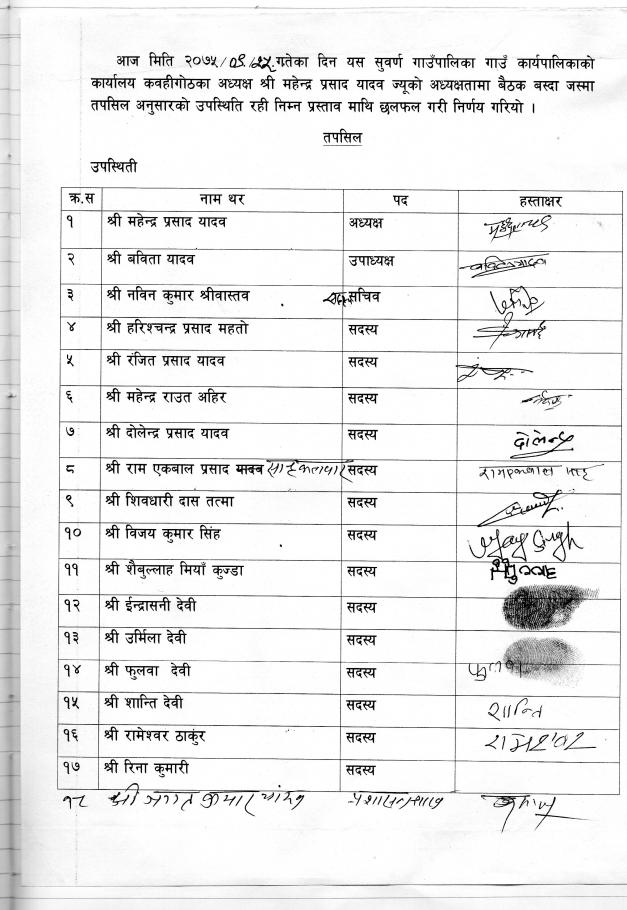 आज मिति २०७५/०९/२५ गतेका दिन यस सुवर्ण गाउँपालिका गाउँ कार्यपालिकाको
कार्यालय कवहीगोठका अध्यक्ष श्री महेन्द्र प्रसाद यादव ज्यूको अध्यक्षतामा बैठक बस्दा जस्मा
तपसिल अनुसारको उपस्थिति रही निम्न प्रस्ताव माथि छलफल गरी निर्णय गरियो ।
तपसिल
उपस्थिती
क्र.स नाम थर पद हस्ताक्षर
१ श्री महेन्द्र प्रसाद यादव अध्यक्ष
२ श्री बविता यादव उपाध्यक्ष
३ श्री नविन कुमार श्रीवास्तव सचिव
४ श्री हरिश्चन्द्र प्रसाद महतो सदस्य
५ श्री रंजित प्रसाद यादव सदस्य
६ श्री महेन्द्र राउत अहिर सदस्य
७ श्री दोलेन्द्र प्रसाद यादव सदस्य दोलेन्द्र
८ श्री राम एकबाल प्रसाद यादव साह कलवार सदस्य रामएकवाल साह
९ श्री शिवधारी दास तत्मा सदस्य
१० श्री विजय कुमार सिंह सदस्य Vijay Singh
११ श्री शैबुल्लाह मियाँ कुज्डा सदस्य
१२ श्री ईन्द्रासनी देवी सदस्य
१३ श्री उर्मिला देवी सदस्य
१४ श्री फुलवा देवी सदस्य फुलवा
१५ श्री शान्ति देवी सदस्य शान्ति
१६ श्री रामेश्वर ठाकुर सदस्य रामेश्वर
१७ श्री रिना कुमारी सदस्य
१८ श्री कुमार